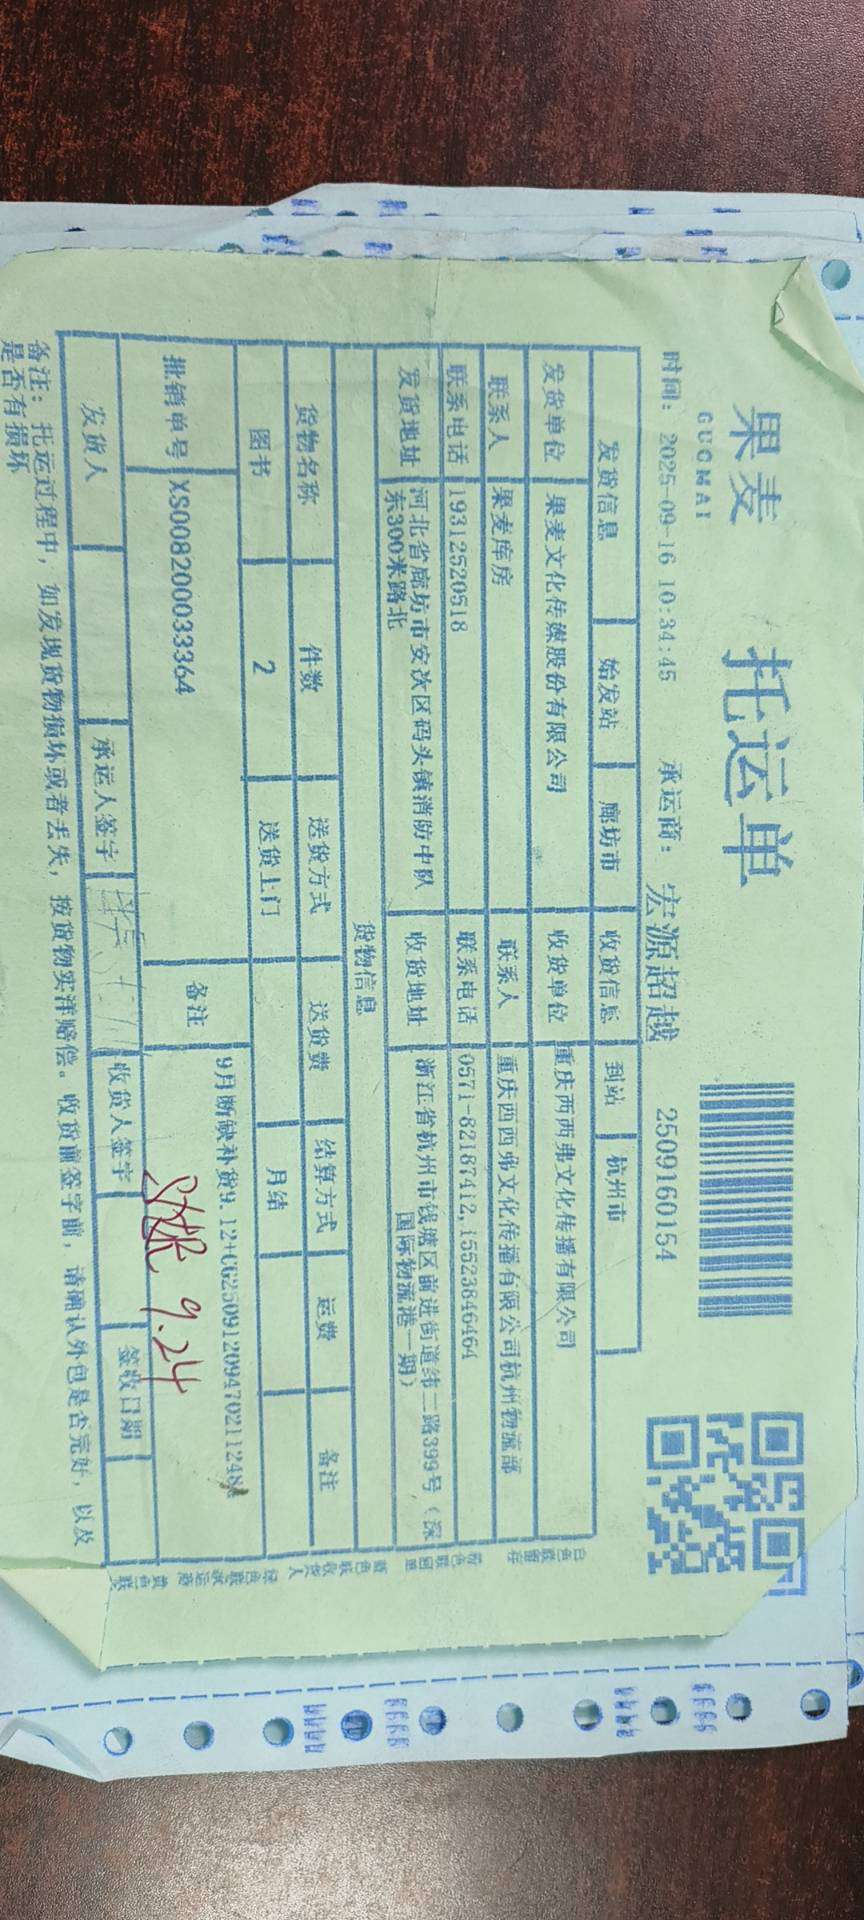 果麦
GUOMAI
托运单
时间：2025-09-16 10:34:45 承运商：宏源超越 2509160154
发货信息 始发站 廊坊市 收货信息 到站 杭州市
发货单位 果麦文化传媒股份有限公司 收货单位 重庆西西弗文化传播有限公司
联系人 果麦库房 联系人 重庆西西弗文化传播有限公司杭州物流部
联系电话 19312520518 联系电话 0571-82187412,15523846464
发货地址 河北省廊坊市安次区码头镇消防中队东300米路北 收货地址 浙江省杭州市钱塘区前进街道纬二路399号（深国际物流港一期）
货物信息
货物名称 件数 送货方式 送货费 结算方式 运费 备注
图书 2 送货上门 月结
批销单号 XS008200033364 备注 9月断缺补货9.12+CG25091209470211248
9.24
发货人 承运人签字 收货人签字 签收日期
备注：托运过程中，如发现货物损坏或者丢失，按货物实洋赔偿。收货前签字前，请确认外包是否完好，以及
是否有损坏